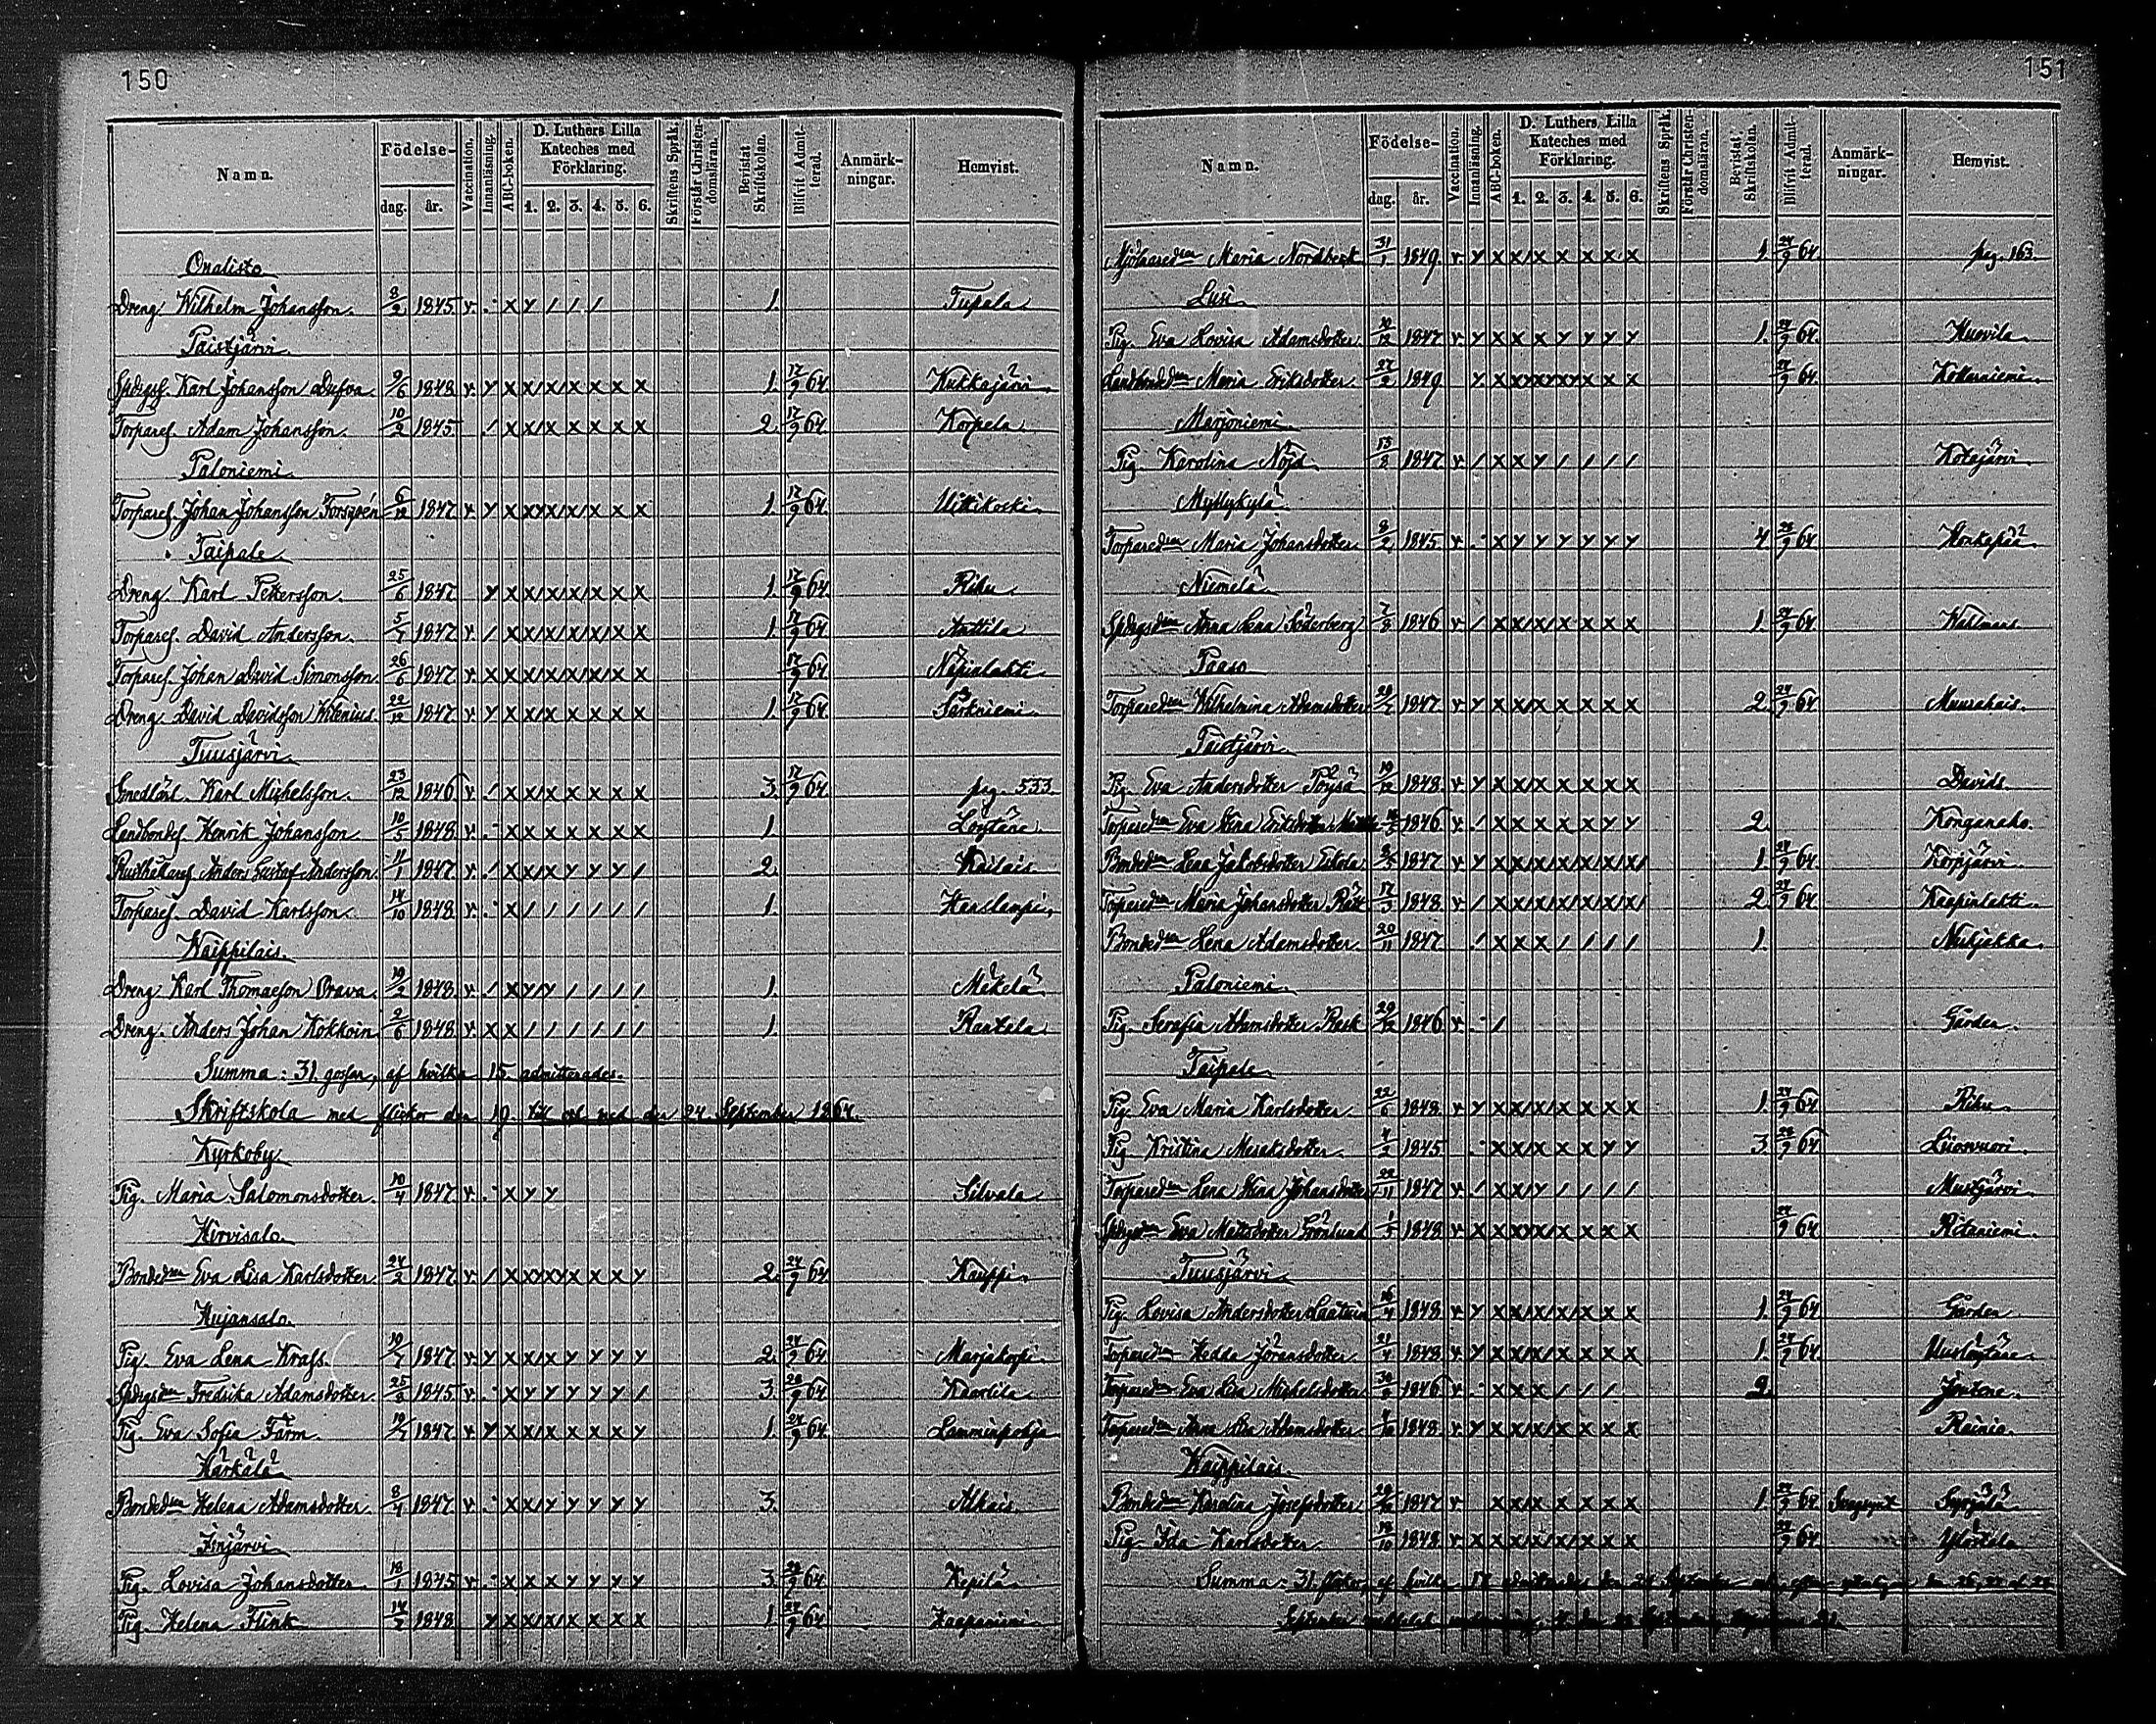 150
Namn. Födelse- dag. år. Vaccination. Innanläsning. ABC-boken. D. Luthers Lilla Kateches med Förklaring. 1. 2. 3. 4. 5. 6. Skriftens Språk. Förstår Christendomsläran. Bevistat Skriftskolan. Blifvit Admitterad. Anmärkningar. Hemvist.
Onalisto
Dreng. Wilhelm Johansson. 8/2 1845 v. . x y / / / 1. Tupala
Paistjärvi
Karl Johansson Dufva. 9/6 1848 v. y x x/x/x x x x 1. 17/9 64. Kukkajärvi
Torpares. Adam Johansson. 10/2 1845 / x x/x/x x x x 2. 17/9 64. Korpela
Paloniemi
Torpares. Johan Johansson Forsgrén 6/12 1847 v. y 1. 17/9 64. Uittikoski
Taipale
Dreng. Karl Pettersson. 25/6 1847 y x x/x/x/x x x 1. 17/9 64. Riku
Torpares. David Andersson. 5/7 1847 v. / x x/x/x/x/x x 1. 17/9 64. Anttila
Torpares. Johan David Simonsson 26/6 1847 v. x x x/x/x/x/x x 17/9 64. Näpinlahti
Dreng. David Davidsson Wilenius 22/12 1847 v. y x x/x x x x x 1. 17/9 64. Särkniemi
Tuusjärvi
Smedlärl. Karl Michelsson. 23/12 1846 v. / x x/x x x x x 3. 17/9 64. pag. 533.
Landbondes. Henrik Johansson 10/5 1848 v. . x x x x x x x 1. Löytäne
Rusthållares. Anders Gustaf Andersson. 11/1 1847 v. / x x/x y y y / 2. Kailais
Torpares. David Karlsson. 14/10 1848 v. . x / / / / / / 1. Hanslampi
Waippilais.
Dreng. Karl Thomasson Orava. 19/2 1848 v. / x y/y / / / / 1. Mikelä
Dreng. Anders Johan Kokkoin 2/6 1848 v. x x / / / / / / 1. Rantala
Summa: 31. gossar, af hvilka 15. admitterades.
Skriftskola med flickor den 19. till och med den 24 September 1864.
Kyrkoby
Pig. Maria Salomonsdotter. 10/4 1847 v. . x y y Silvala
Hirvisalo.
Bondedern Eva Lisa Karlsdotter. 24/2 1847 v. / x 2. 24/9 64. Kauppi
Kujansalo.
Pig. Eva Lena Krafs. 19/7 1847 v. y x x/x y y y y 2. 24/9 64. Marjakorpi
Fredrika Adamsdotter. 25/8 1845 v. . x y y y y y / 3. 28/9 64. Kaarlila
Pig. Eva Sofia Färm. 19/7 1847 v. y x x/x x x x y 1. 24/9 64. Lamminpohja
Härkälä
Bondedern Helena Adamsdotter. 8/4 1847 v. . x x/y y y y y 3. Alkais
Jinjärvi
Pig. Lovisa Johansdotter 18/1 1845 v. . x x x y y y y 3. 28/9 64. Kepilä
Pig. Helena Flink 14/7 1848 y x x/x/x x x x 1. 24/9 64. Haapaniemi
151
Namn. Födelse- dag. år. Vaccination. Innanläsning. ABC-boken. D. Luthers Lilla Kateches med Förklaring. 1. 2. 3. 4. 5. 6. Skriftens Språk. Förstår Christendomsläran. Bevistat Skriftskolan. Blifvit Admitterad. Anmärkningar. Hemvist.
Maria Nordbeck 31/1 1849 v. y x x/x x x x x 1. 24/9 64. pag. 163.
Lusi
Pig. Eva Lovisa Adamsdotter 10/12 1847 v. y x x x y y y y 1. 24/9 64. Kuovila
Landbondedern Maria Eriksdotter 27/2 1849 y x 24/9 64. Kottarniemi
Marjoniemi
Pig. Karolina Nöjd 13/8 1847 v. / x x y / / / / Kotajärvi
Myllykylä
Torparedern Maria Johansdotter 8/2 1845 v. . x y y y y y y 4. 28/9 64. Honkapää
Niemelä
Anna Lena Söderberg 7/8 1846 v. / x x/x/x x x x 1. 24/9 64. Wahlmans
Paaso
Torparedern Wilhelmina Adamsdotter 29/7 1847 v. y x x/x x x x x 2. 24/9 64. Muurahais
Paistjärvi
Pig. Eva Andersdotter Pöysä 19/12 1848 v. y x x x x x x x Davids
Torparedern Eva Stina Eriksdotter 1846 v. / x x x x x y y 2. Konganaho
Bondedern Lena Jakobsdotter Eskola 1847 v. y x x/x/x/x/x/x/ 1. 24/9 64. Korpjärvi
Torparedern Maria Johansdotter Rätt 17/3 1848 v. / x x/x/x/x/x/x/ 2. 24/9 64. Kaapinlahti
Bondedern Lena Adamsdotter 20/11 1847 / x x x / / / / 1. Nuijakka
Paloniemi
Pig. Serafia Adamsdotter Rask 29/12 1846 v. . / Gården
Taipale
Pig. Eva Maria Karlsdotter 22/6 1848 v. y x x/x/x x x x 1. 24/9 64. Riku
Pig. Kristina Mesaksdotter 4/2 1845 . x x/x/x x y y 3. 28/9 64. Liiosvuori
Torparedern Lena Stina Johansdotter 22/11 1847 v. / x x/y / / / / Mustjärvi
Eva Mattsdotter Grönlund 1/5 1848 v. x x 24/9 64 Ritaniemi
Tuusjärvi
Pig. Lovisa Andersdotter Laatuin 16/4 1848 v. y x x/x/x/x x x 1. 24/9 64 Gården
Torparedern Hedda Göransdotter 21/4 1848 v. y x x/x/x x x x 1. 24/9 64 Uusilöytäne
Torparedern Eva Lisa Michelsdotter 30/8 1846 v. . x x x / / / 2. Joutone
Torparedern Anna Lisa Adamsdotter 1848 v. y x x/x/x x x x Rainio
Waippilais.
Bondedern Karolina Josefsdotter 1847 v. x x/x x x x x 1. 24/9 64 Svagsynt Syrjälä
Pig. Ida Karlsdotter 13/10 1848 v. x x x/x/x/x x x 24/9 64 Ylöstalo
Summa: 31. flickor, af hvilka 17 admitterades den 24 September och, efter
September